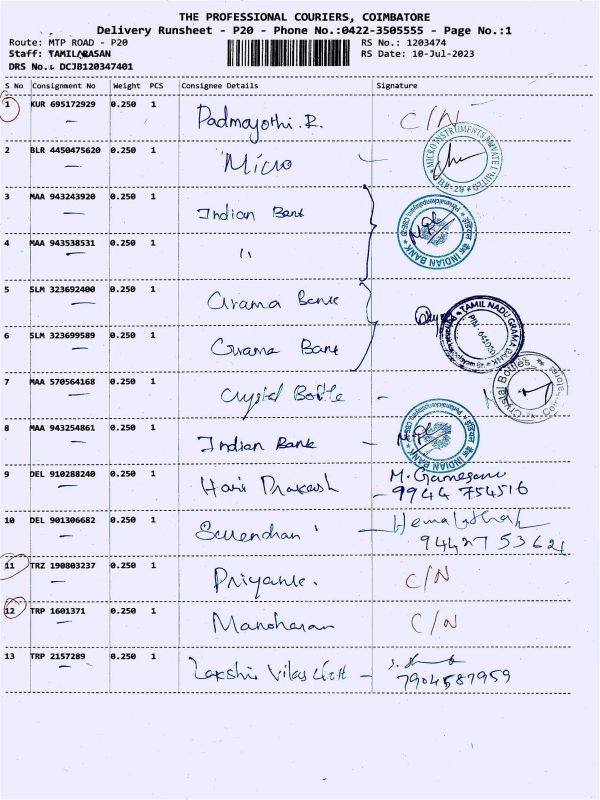 THE PROFESSIONAL COURIERS, COIMBATORE
Delivery Runsheet - P20 - Phone No.:0422-3505555 - Page No.:1
Route: MTP ROAD - P20
RS No.: 1203474
Staff: TAMILARASAN
RS Date: 10-Jul-2023
DRS No.: DCJB120347401
S No Consignment No Weight PCS Consignee Details Signature
1 KUR 695172929 0.250 1 Padmajothi.R. C/N
2 BLR 4450475620 0.250 1 Micro
MICRO INSTRUMENTS PRIVATE LIMITED
3 MAA 943243920 0.250 1 Indian Bank
INDIAN BANK
4 MAA 943538531 0.250 1 "
5 SLM 323692400 0.250 1 Grama Bank
TAMIL NADU GRAMA BANK
6 SLM 323699589 0.250 1 Grama Bank
7 MAA 570564168 0.250 1 Crystal Bottle
Crystal Bottles
8 MAA 943254861 0.250 1 Indian Bank
INDIAN BANK
9 DEL 910288240 0.250 1 Hari Prakash M. Ganesan
9944 754516
10 DEL 901306682 0.250 1 Hemalathah
94427 53621
11 TRZ 190803237 0.250 1 C/N
12 TRP 1601371 0.250 1 Manoharan C/N
13 TRP 2157289 0.250 1 Lakshi Vilas
7904587959